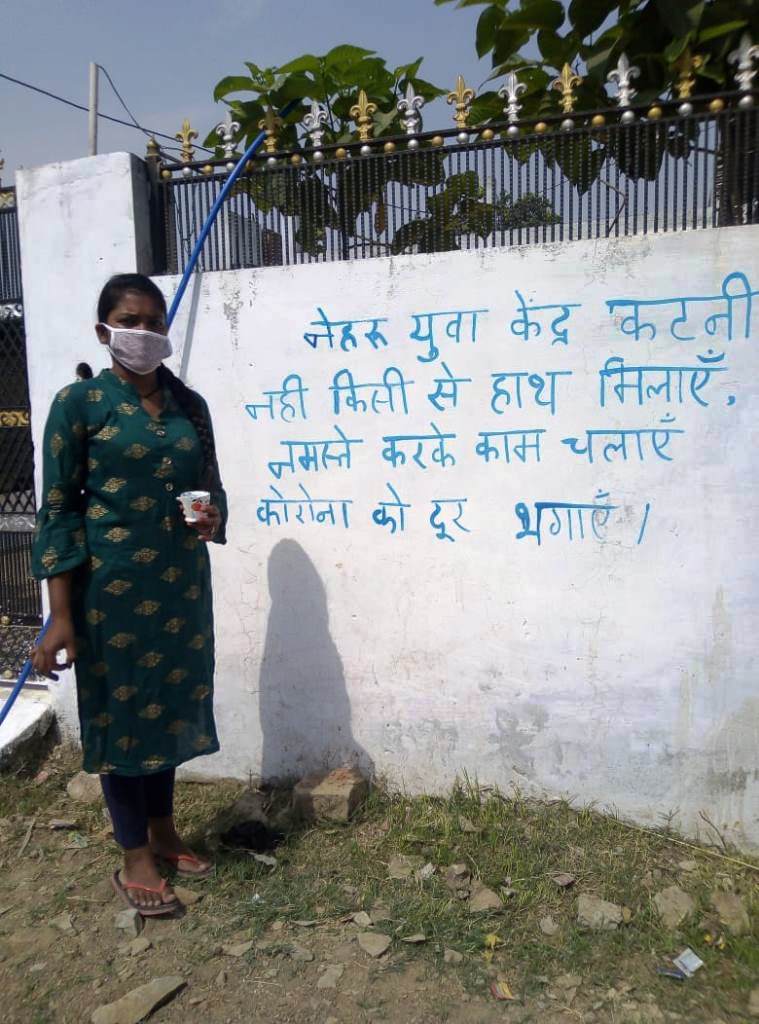 नेहरू युवा केंद्र कटनी
नही किसी से हाथ मिलाएँ,
नमस्ते करके काम चलाएँ
कोरोना को दूर भगाएँ ।